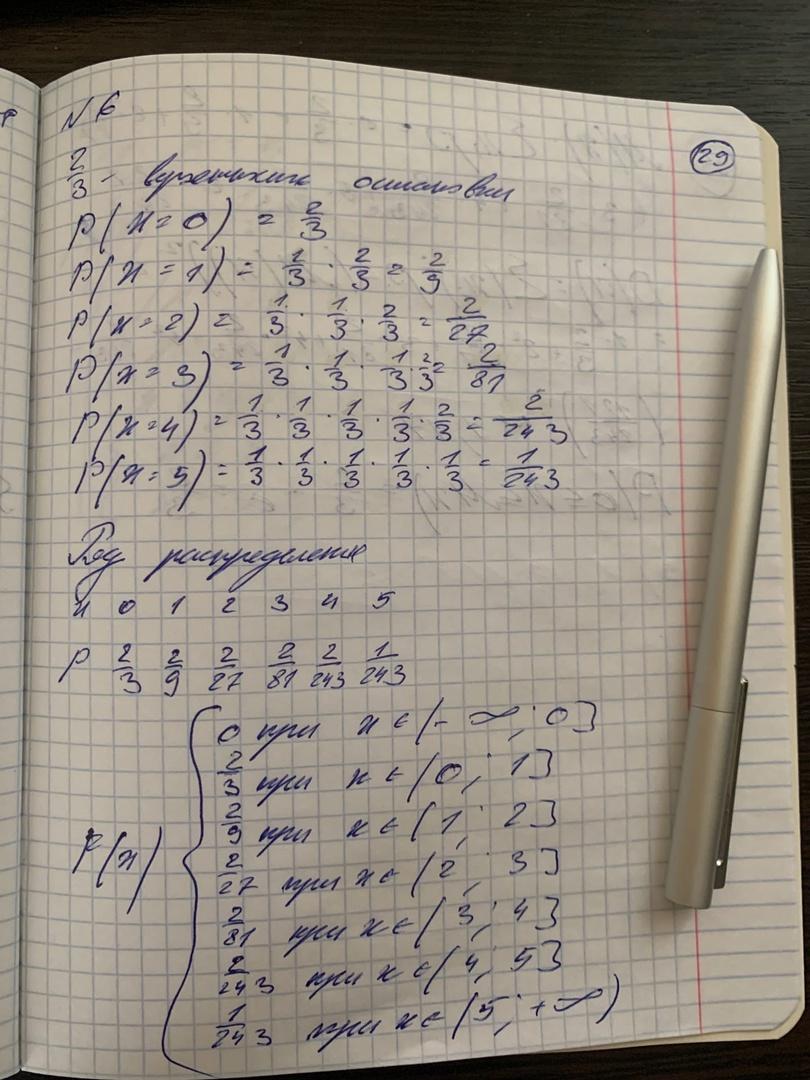 N 6
29
2/3 - остановки
P(x=0) = 2/3
P(x=1) = 1/3 · 2/3 = 2/9
P(x=2) = 1/3 · 1/3 · 2/3 = 2/27
P(x=3) = 1/3 · 1/3 · 1/3 · 2/3 = 2/81
P(x=4) = 1/3 · 1/3 · 1/3 · 1/3 · 2/3 = 2/243
P(x=5) = 1/3 · 1/3 · 1/3 · 1/3 · 1/3 = 1/243
Ряд распределения
x 0 1 2 3 4 5
p 2/3 2/9 2/27 2/81 2/243 1/243
F(x) { 0 при x ∈ (-∞; 0]
2/3 при x ∈ (0; 1]
2/9 при x ∈ (1; 2]
2/27 при x ∈ (2; 3]
2/81 при x ∈ (3; 4]
2/243 при x ∈ (4; 5]
1/243 при x ∈ (5; +∞)